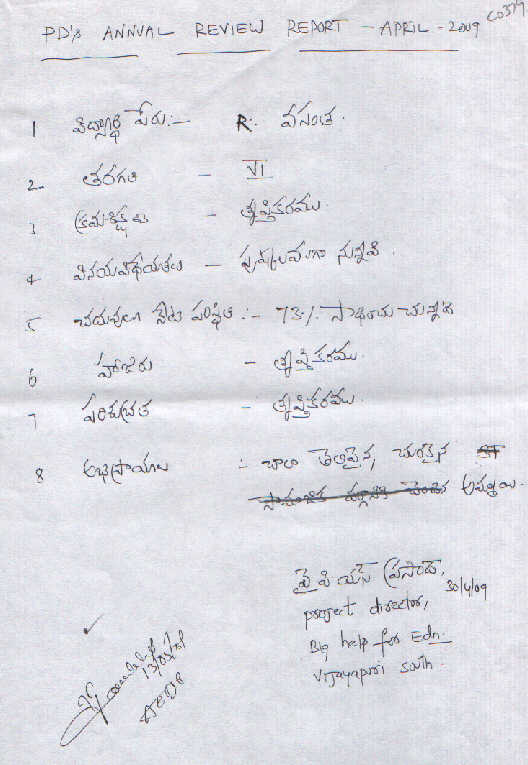 PD's ANNUAL REVIEW REPORT - APRIL - 2009
1 విద్యార్థి పేరు :- R. వసంత.
2 తరగతి - VI
3 క్రమశిక్షణ - తృప్తికరము.
4 వినయవిధేయతలు - పుష్కలముగా నున్నవి.
5 చదువులో పరిస్థితి :- 73%
6 హాజరు - తృప్తికరము.
7 పరిశుభ్రత - తృప్తికరము.
8 అభిప్రాయాలు :- చాలా తెలివైన, చురుకైన
అమ్మాయి.
వై పి యస్ ప్రసాద్, 30/4/09
project director,
Big help for Edn.
Vijayapuri South.